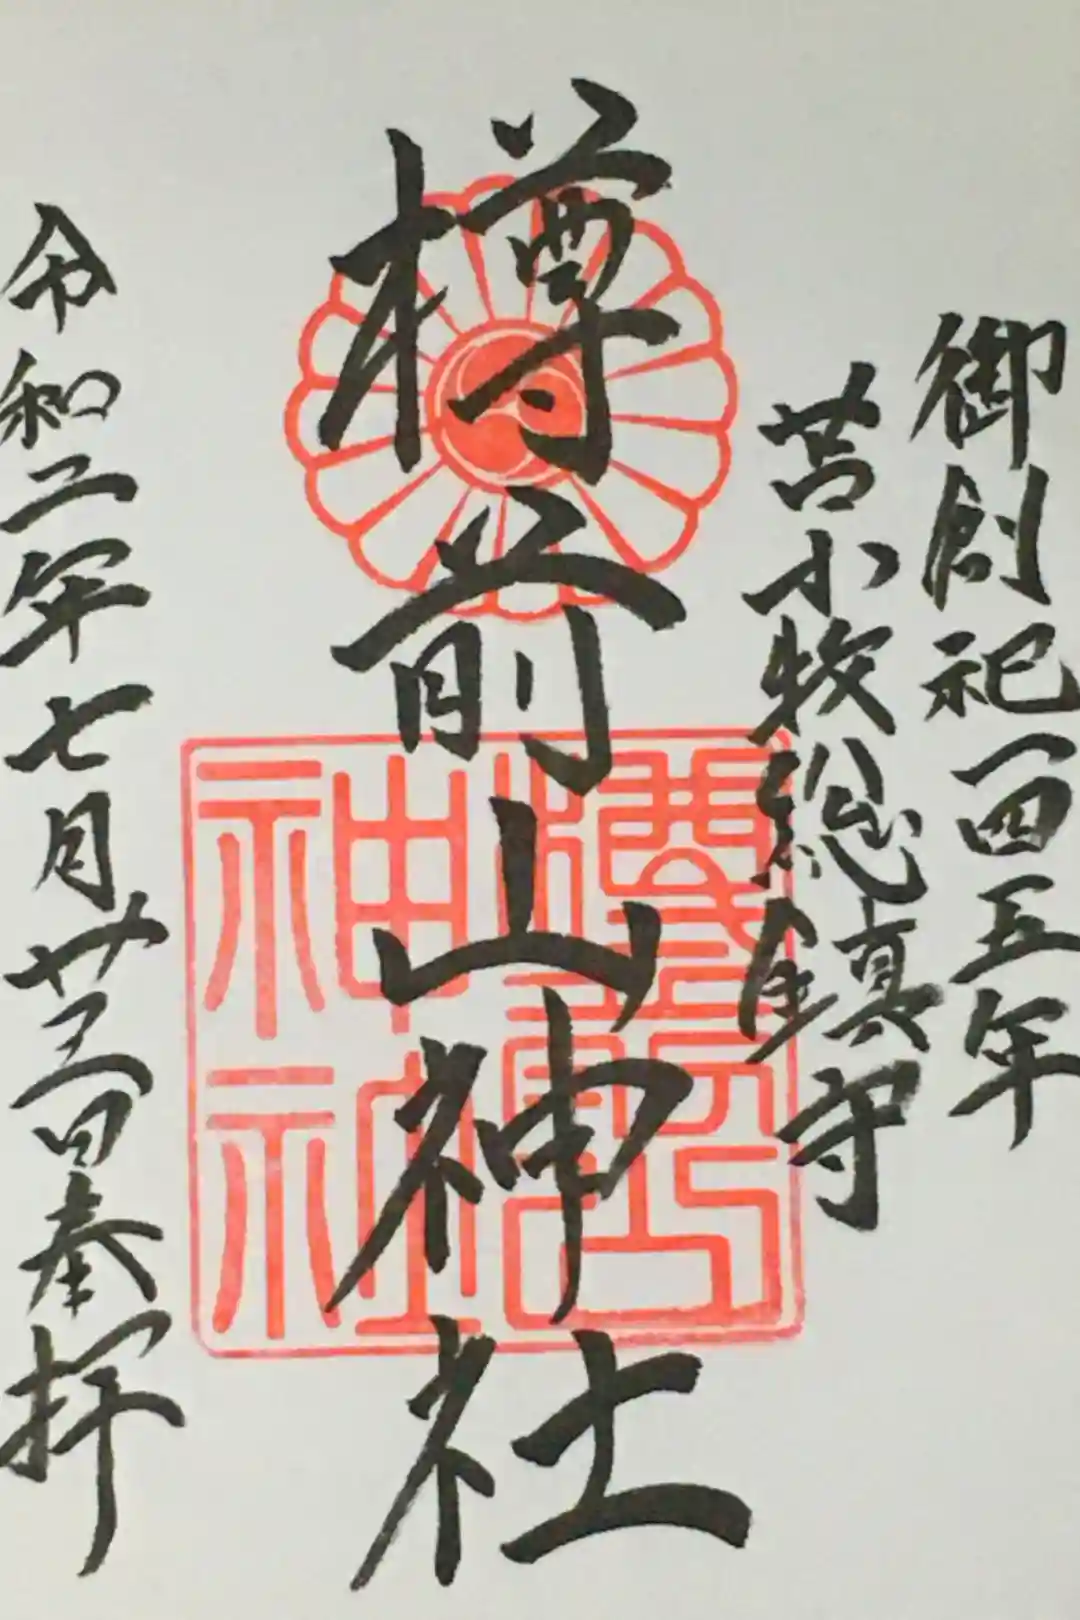 御創祀一四五年
苫小牧総鎮守
樽前山神社
樽前山神社
令和二年七月廿三日奉拝